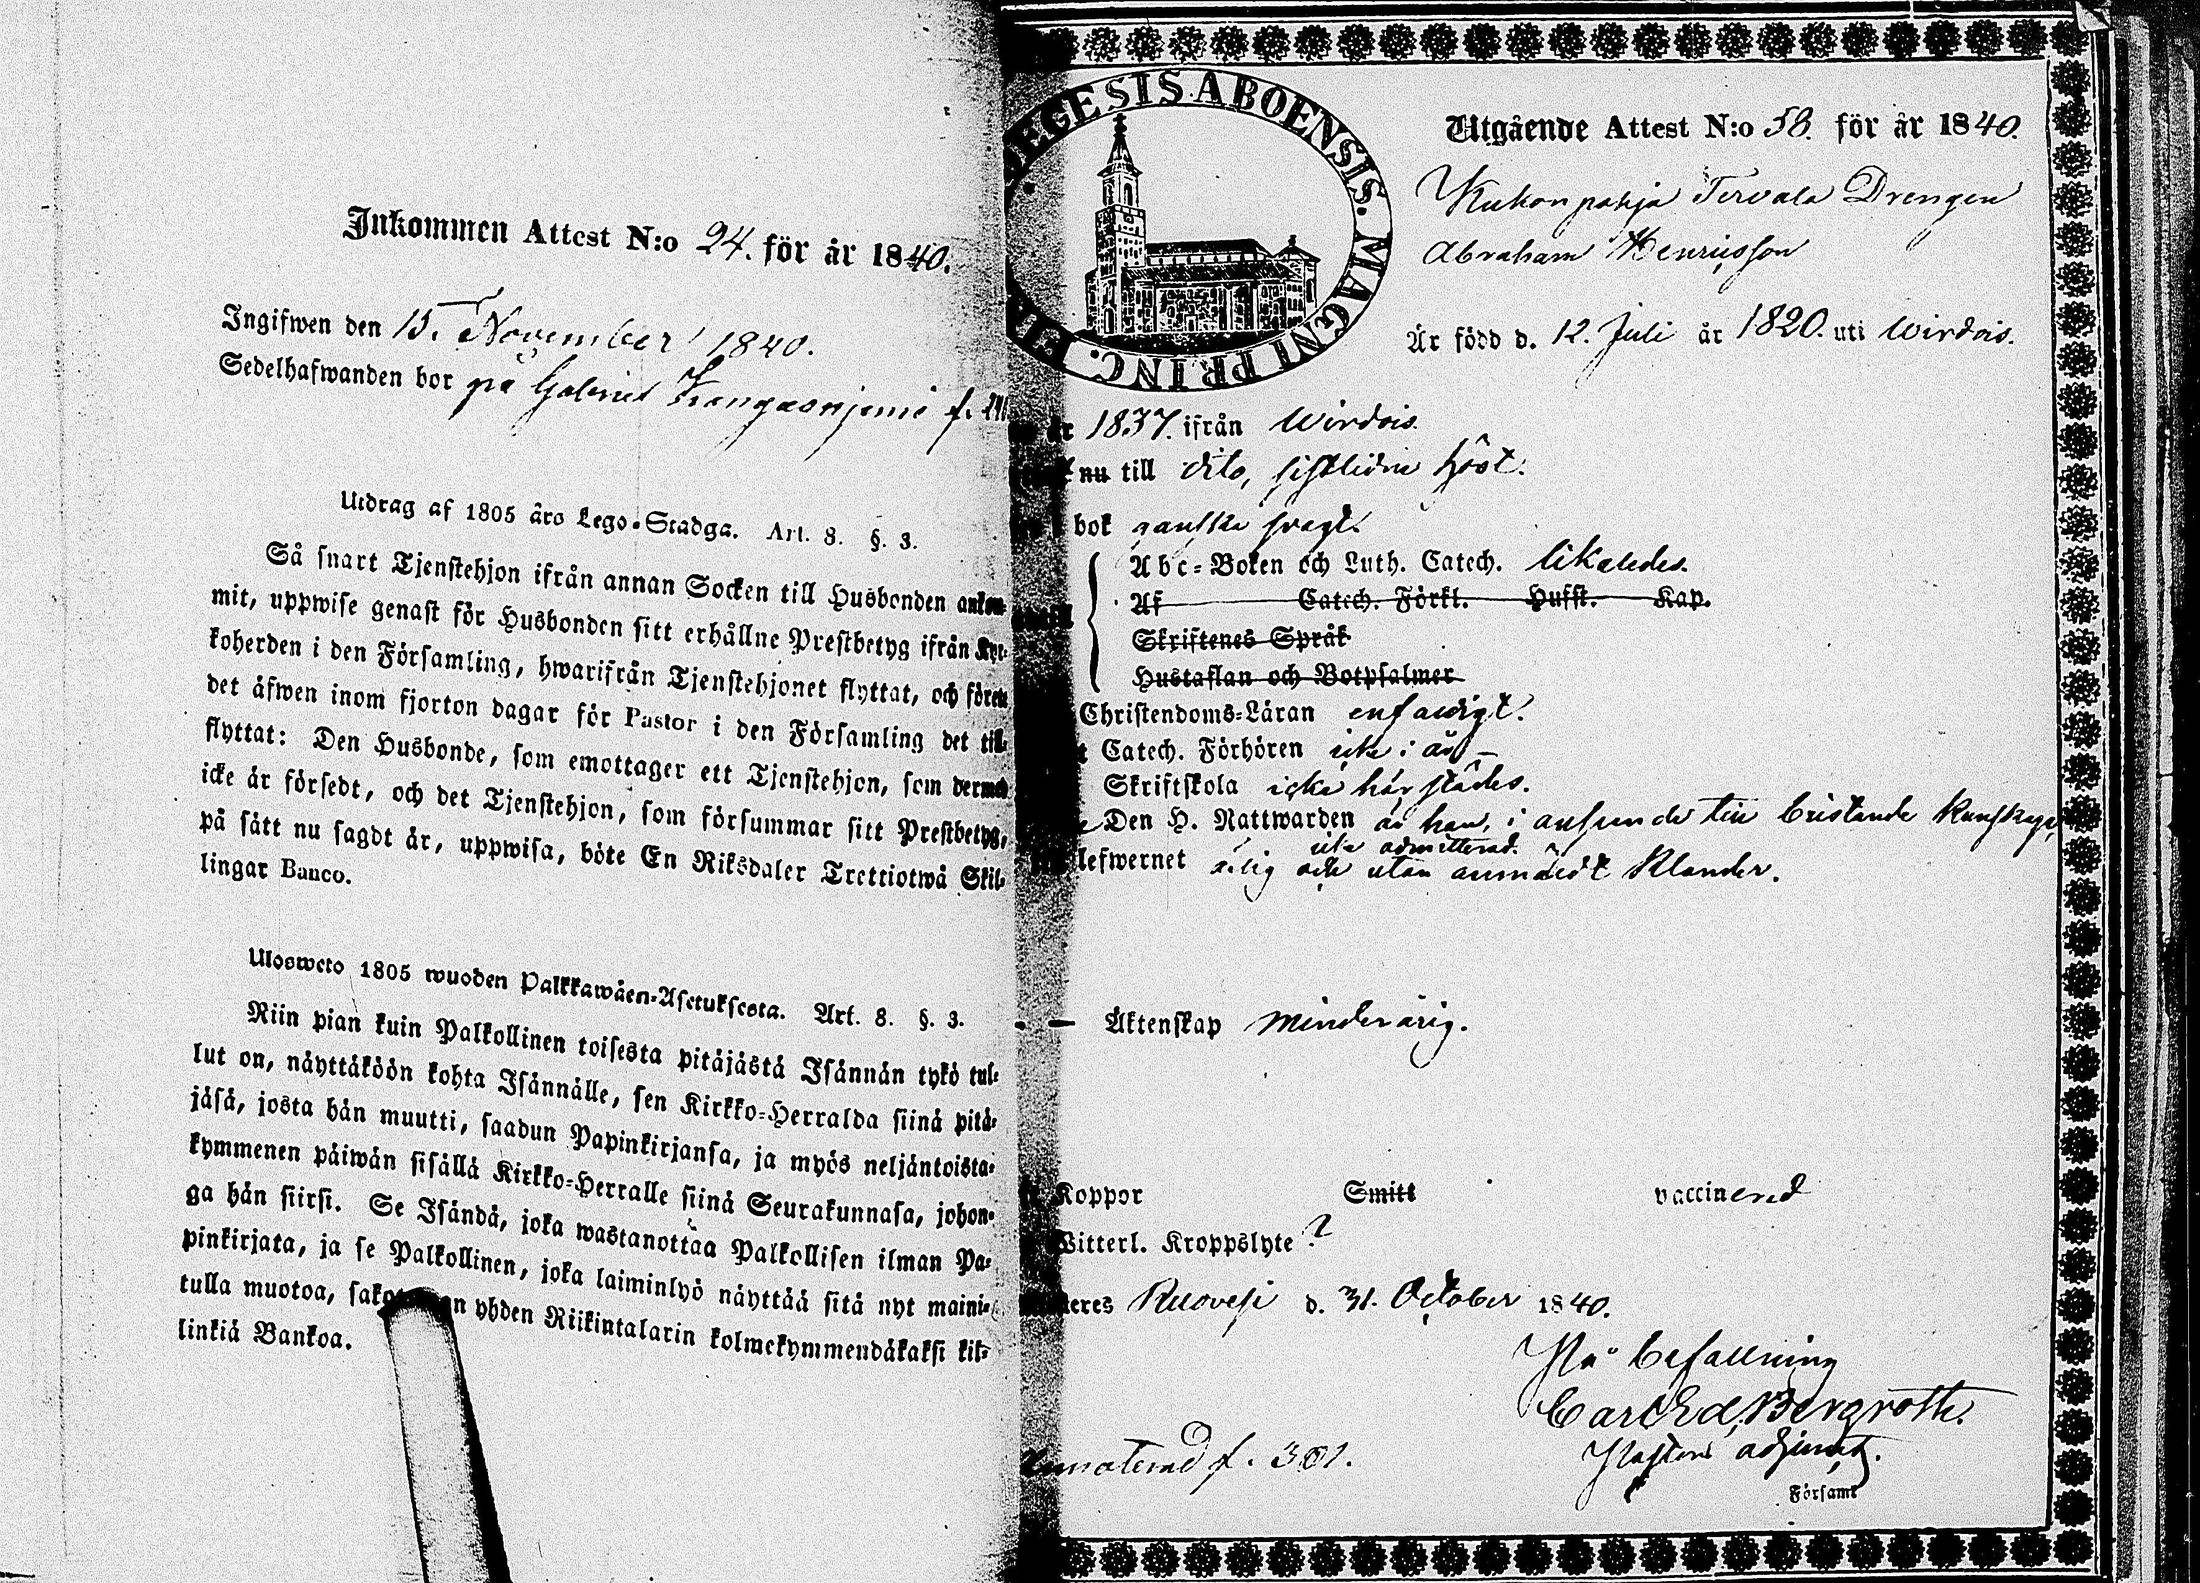 Inkommen Attest N:o 24. för år 1840.
Ingifwen den 15. November 1840.
Sedelhafwanden bor på Gabriel Kangasnjemi f.
Utdrag af 1805 års Lego-Stadga. Art. 8. §. 3.
Så snart Tjenstehjon ifrån annan Socken till Husbonden ankom-
mit, uppwise genast för Husbonden sitt erhållne Prestbetyg ifrån Kyr-
koherden i den Församling, hwarifrån Tjenstehjonet flyttat, och förete
det äfwen inom fjorton dagar för Pastor i den Församling det till-
flyttat: Den Husbonde, som emottager ett Tjenstehjon, som dermed
icke är försedt, och det Tjenstehjon, som försummar sitt Prestbetyg,
på sätt nu sagdt är, uppwisa, böte En Riksdaler Trettiotwå Skil-
lingar Banco.
Ulosweto 1805 wuoden Palkkawäen-Asetuksesta. Art. 8. §. 3.
Niin pian kuin Palkollinen toisesta pitäjästä Isännän tykö tul-
lut on, näyttäköön kohta Isännälle, sen Kirkko-Herralda siinä pitä-
jäsä, josta hän muutti, saadun Papinkirjansa, ja myös neljäntoista-
kymmenen päiwän sisällä Kirkko-Herralle siinä Seurakunnasa, johon-
ga hän siirsi. Se Isändä, joka wastanottaa Palkollisen ilman Pa-
pinkirjata, ja se Palkollinen, joka laiminlyö näyttää sitä nyt maini-
tulla muotoa, yhden Riikintalarin kolmekymmendäkaksi kil-
linkiä Bankoa.
ECESIS ABOENSIS. MAGNI PRINC.
Utgående Attest N:o 58. för år 1840.
Kukonpohja Tervala Drengen
Abraham Henricsson
Är född d. 12. Juli år 1820. uti Wirdois.
år 1837. ifrån Wirdois.
nu till dito, sistlidne höst.
bok ganska svagt.
Abc-Boken och Luth. Catech. likaledes.
Af Catech. Förkl. Hufst. Kap.
Skriftenes Språk
Hustaflan och Botpsalmer
Christendoms-Läran enfaldigt.
Catech. Förhören icke i år
Skriftskola icke härstädes.
Den H. Nattwarden är han, i anseende till bristande kunskap,
icke admitterad.
lefwernet ärlig och utan anmäldt klander.
Äktenskap minderårig.
Koppor Smitt vaccinerad
Witterl. Kroppslyte ?
Ruovesi d. 31. October 1840.
På befallning
Carl Ed. Bergroth.
Pastors adjunct.
Församl
f. 301.